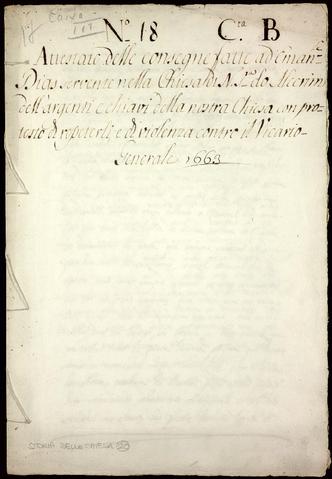 Nº 18 Cta B
Attestate delle consegne fatte ad Eman.
Dias servente nella Chiesa di N. Sra do
dell'argenti e chiavi della nostra Chiesa con pro-
testo di repeterli, e di violenza contro il Vicario
Generale 1663
STORIA DELLA CHIESA